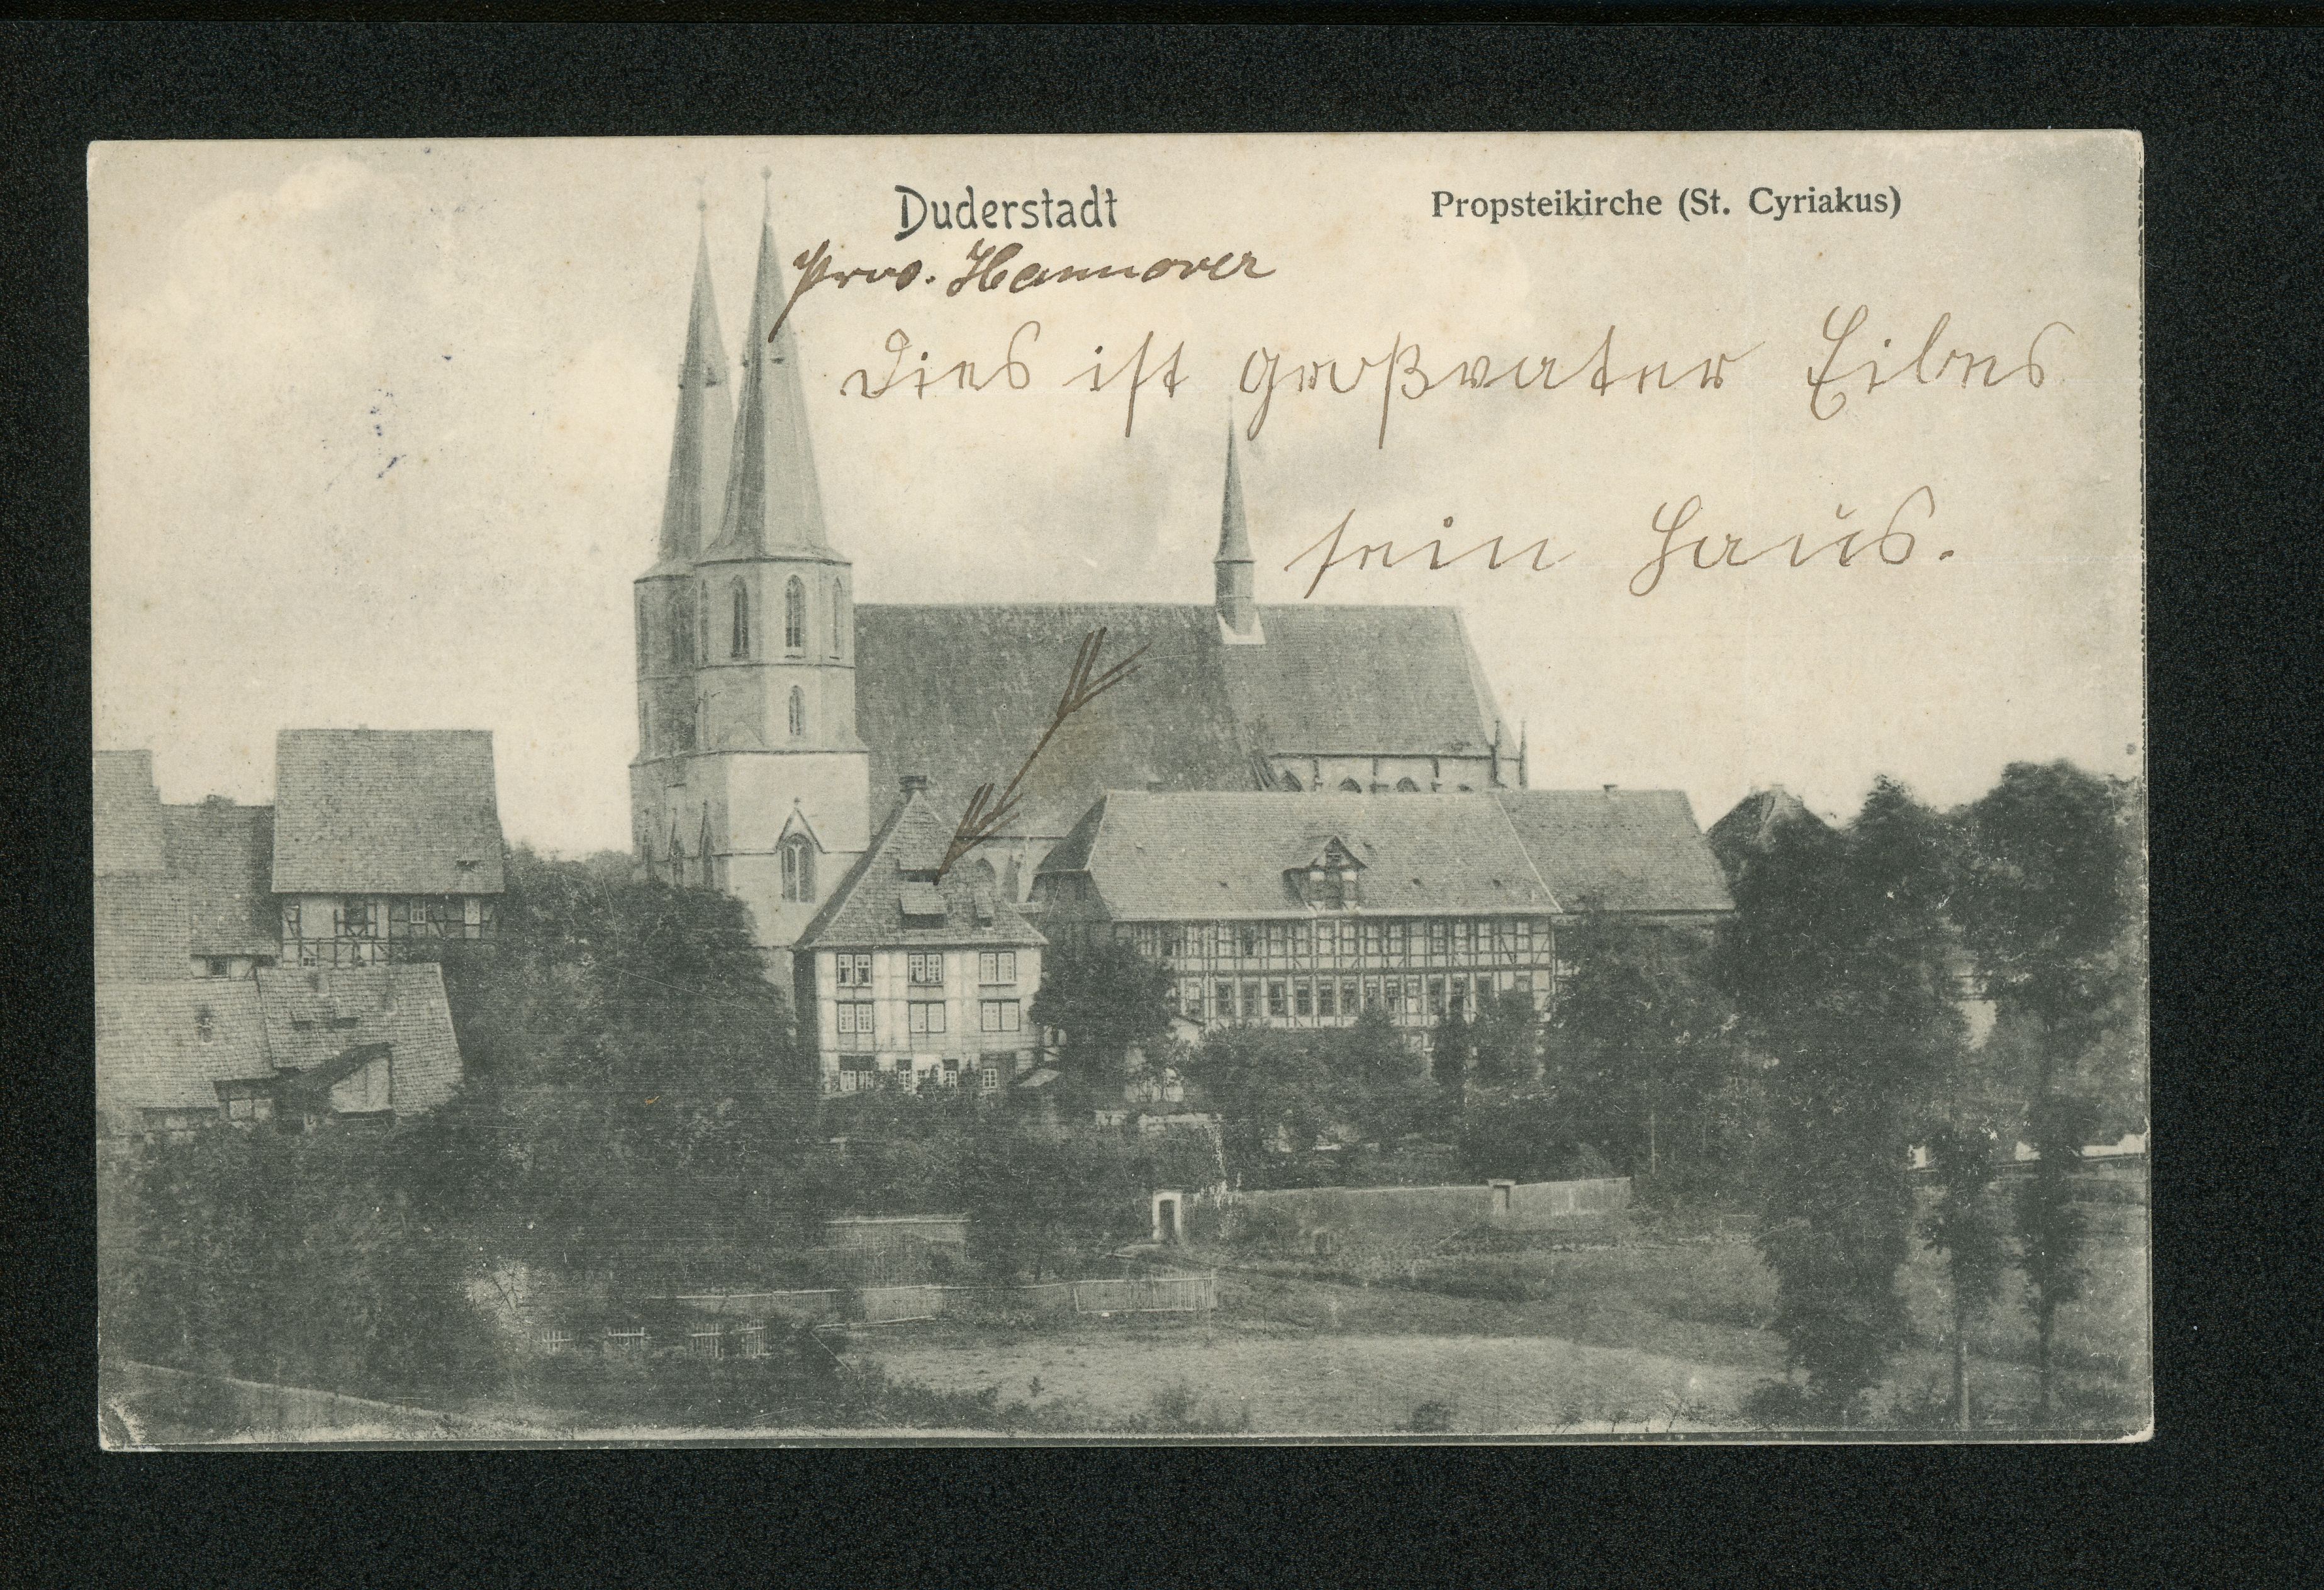 Duderstadt
Propsteikirche (St. Cyriakus)
Prov. Hannover
Dies ist Großvater Eibes
sein Haus.